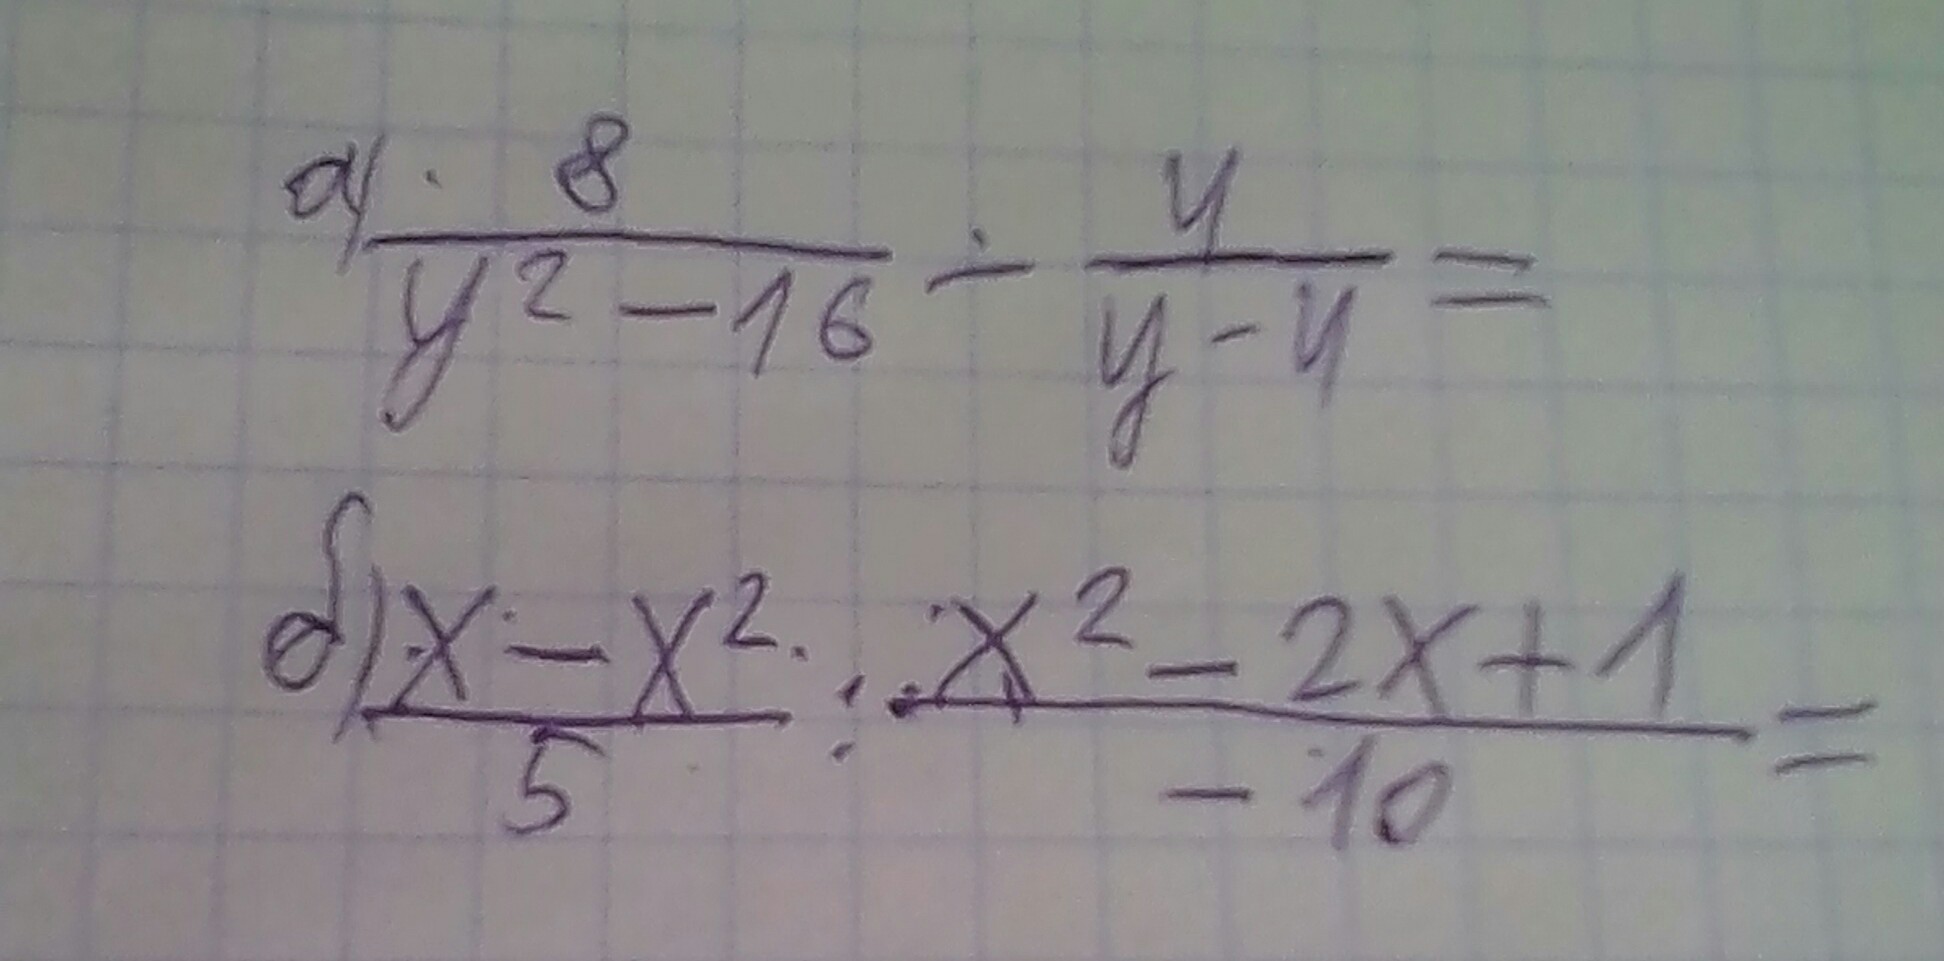 а) 8/(y² - 16) - 4/(y - 4) =
б) (x - x²)/5 : (x² - 2x + 1)/(-10) =